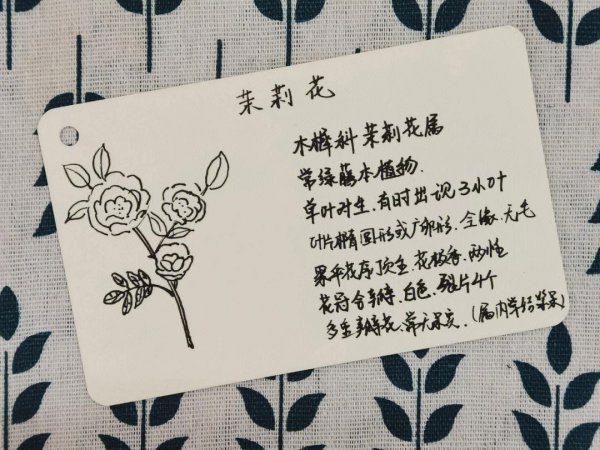 茉莉花
木樨科茉莉花属
常绿藤本植物.
单叶对生.有时出现3小叶
叶片椭圆形或广卵形.全缘.无毛
聚伞花序顶生.花极香.两性
花冠合瓣.白色.裂片4个
多重瓣花.常无果实.(属内单结浆果)